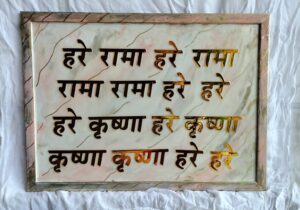 हरे रामा हरे रामा
रामा रामा हरे हरे
हरे कृष्णा हरे कृष्णा
कृष्णा कृष्णा हरे हरे